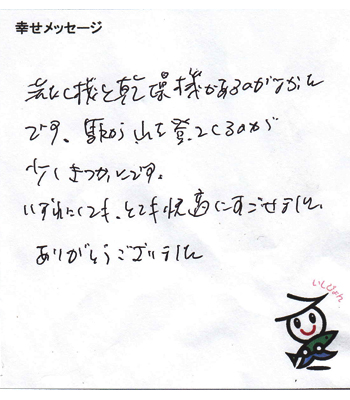 幸せメッセージ
洗たく機と乾燥機があるのがよかった
です。駅から山を登ってくるのが
少しきつかったです。
いずれにしても、とても快適にすごせました。
ありがとうございました
いしぴょん